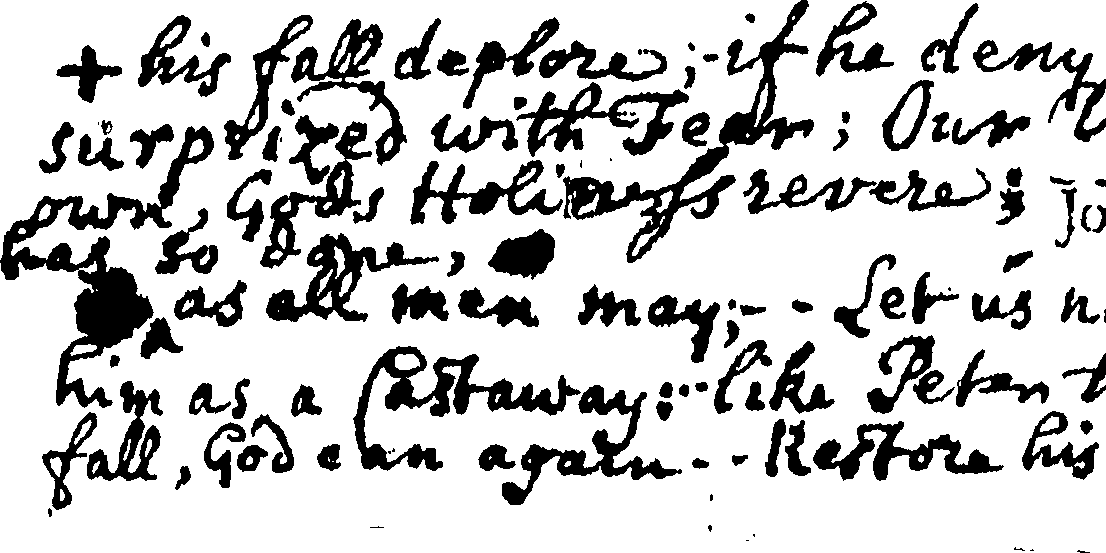 + his fall deplore;- if he deny
surprized with Fear; Our
own, Gods Holiness revere;
has so done,
as all men may;- - Let us
him as a Castaway:- like Peter
fall, God can again - - Restore his